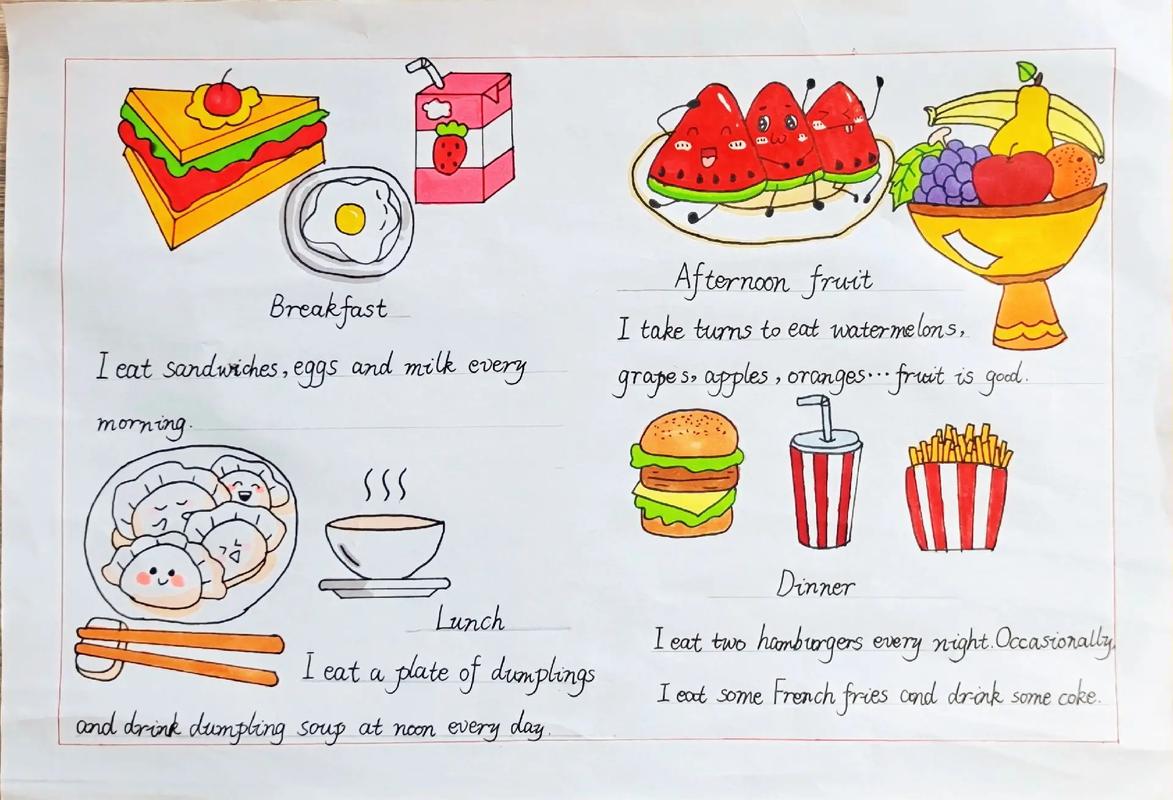 Breakfast
I eat sandwiches, eggs and milk every
morning.
Lunch
I eat a plate of dumplings
and drink dumpling soup at noon every day.
Afternoon fruit
I take turns to eat watermelons,
grapes, apples, oranges... fruit is good.
Dinner
I eat two hamburgers every night. Occasionally,
I eat some French fries and drink some coke.